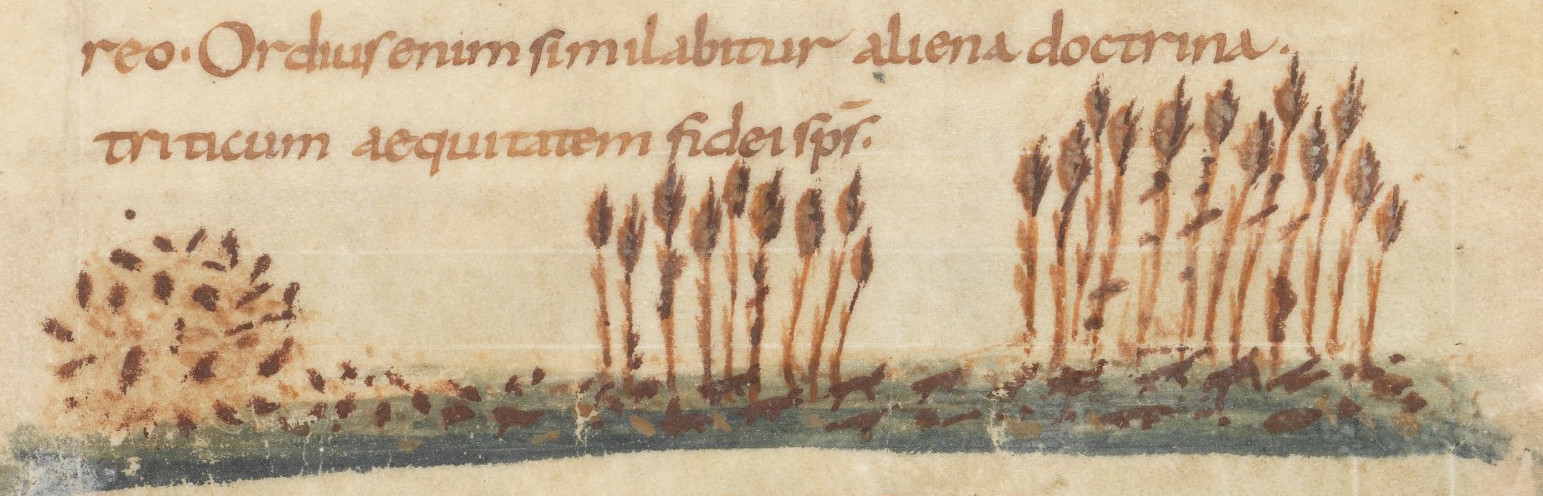 reo. Ordius enim similabitur aliena doctrina.
triticum aequitatem fidei sps̄.